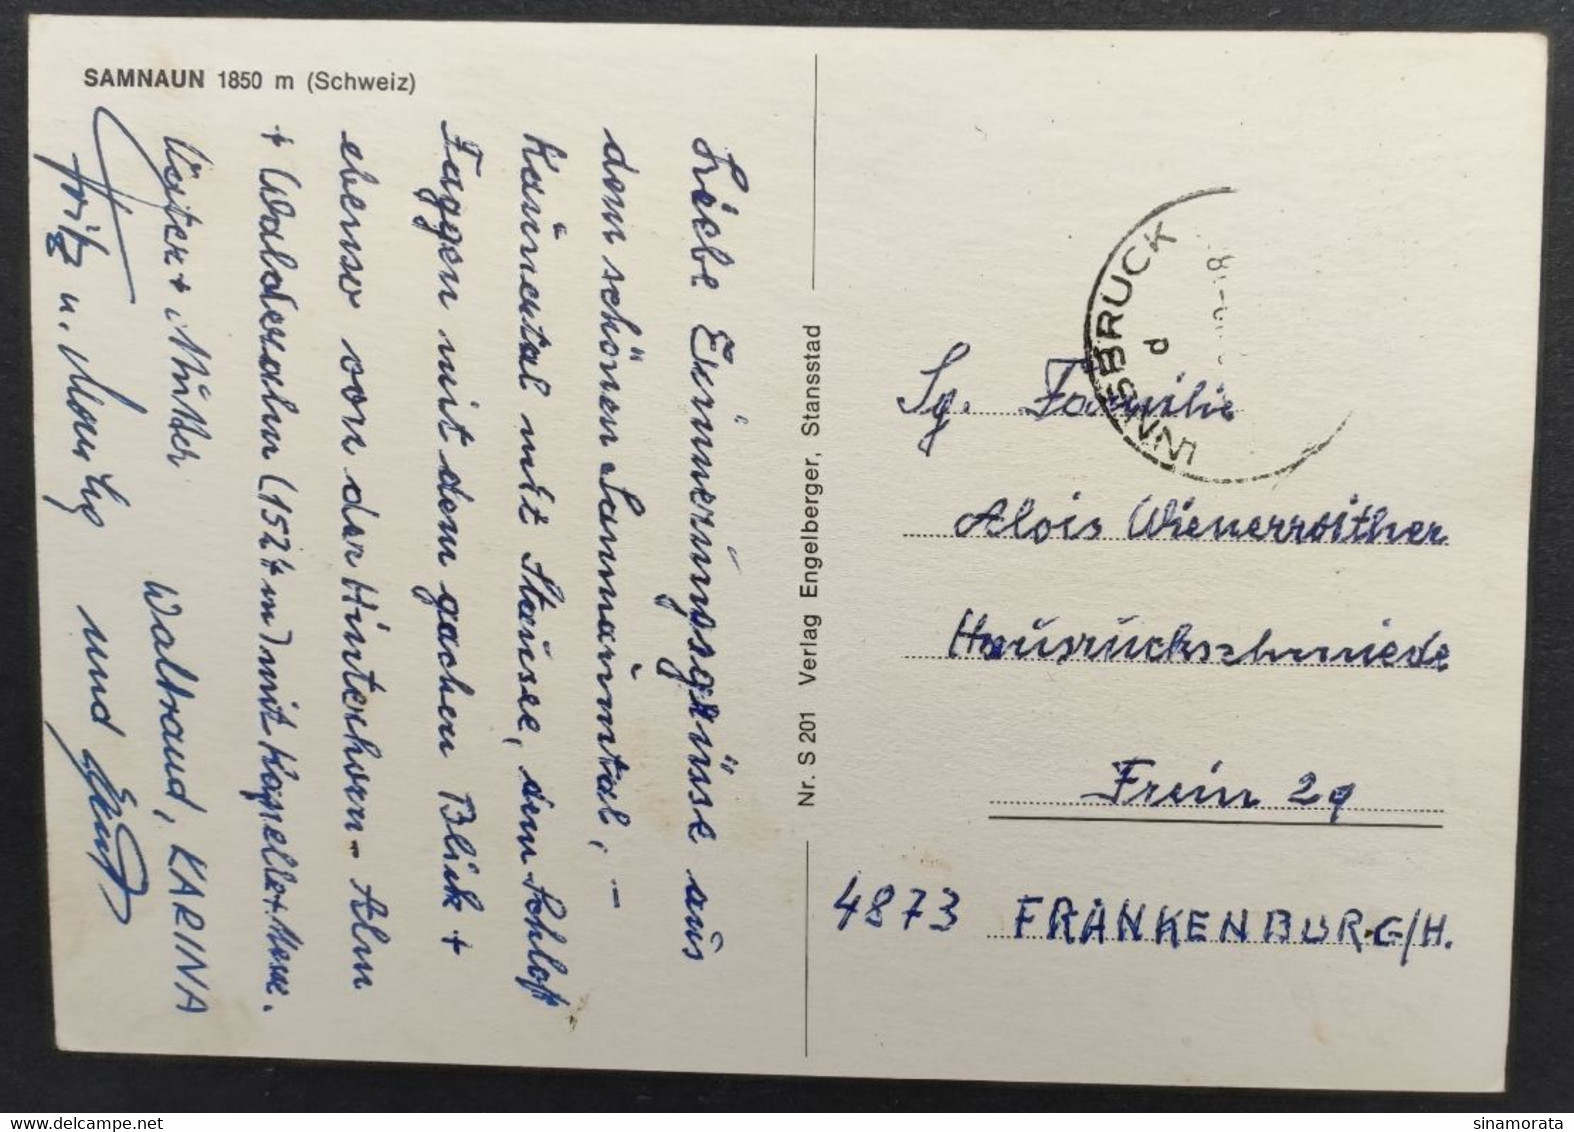 SAMNAUN 1850 m (Schweiz)
Liebe Erinnerungsgrüsse aus
dem schönen Samnauntal, –
Kaunertal mit Stausee, dem Schloß
mit dem gachen Blick +
ebenso von der Hinterhorn-Alm
+ Walderalm (1524 m) mit Kapelle +
Vater + Mutter Waltraud, KARINA
Fritz u. und
Nr. S 201 Verlag Engelberger, Stansstad
INNSBRUCK
d
Sg. Familie
Alois Wienerroither
Hausruckschmiede
Frein 29
4873 FRANKENBURG/H.
sinamorata